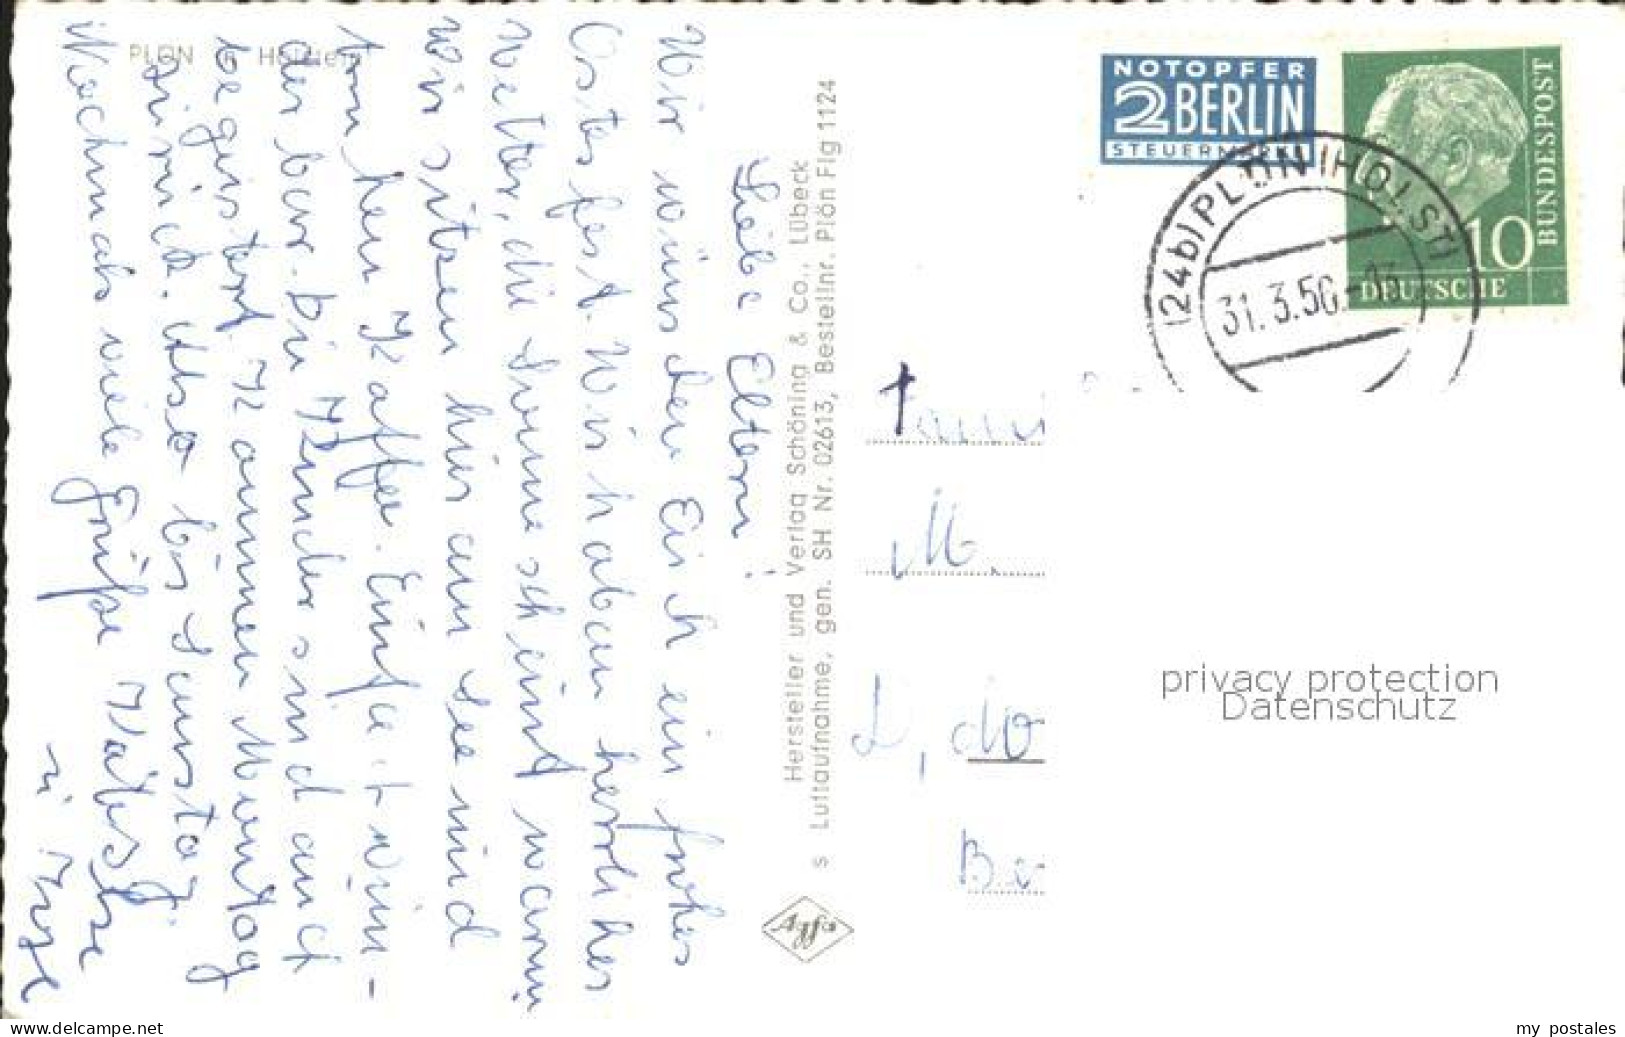 PLÖN in Holstein
Liebe Eltern!
Wir wünschen Euch ein frohes
Osterfest. Wir haben herrliches
Wetter, die Sonne scheint warm
Wir sitzen hier am See und
trinken Kaffee. Einfach wun-
derbar. Die Kinder sind auch
begeistert. Kommen Montag
zurück. Also bis Dienstag.
Nochmals viele Grüße
u. Inge
Hersteller und Verlag Schöning & Co., Lübeck
s Luftaufnahme, gen. SH Nr. 02613, Bestellnr. Plön Flg 1124
Agfa
NOTOPFER
2 BERLIN
STEUERMARKE
DEUTSCHE
BUNDESPOST
10
(24b) PLÖN (HOLST)
31.3.56.
M.
privacy protection
Datenschutz
www.delcampe.net
my postales